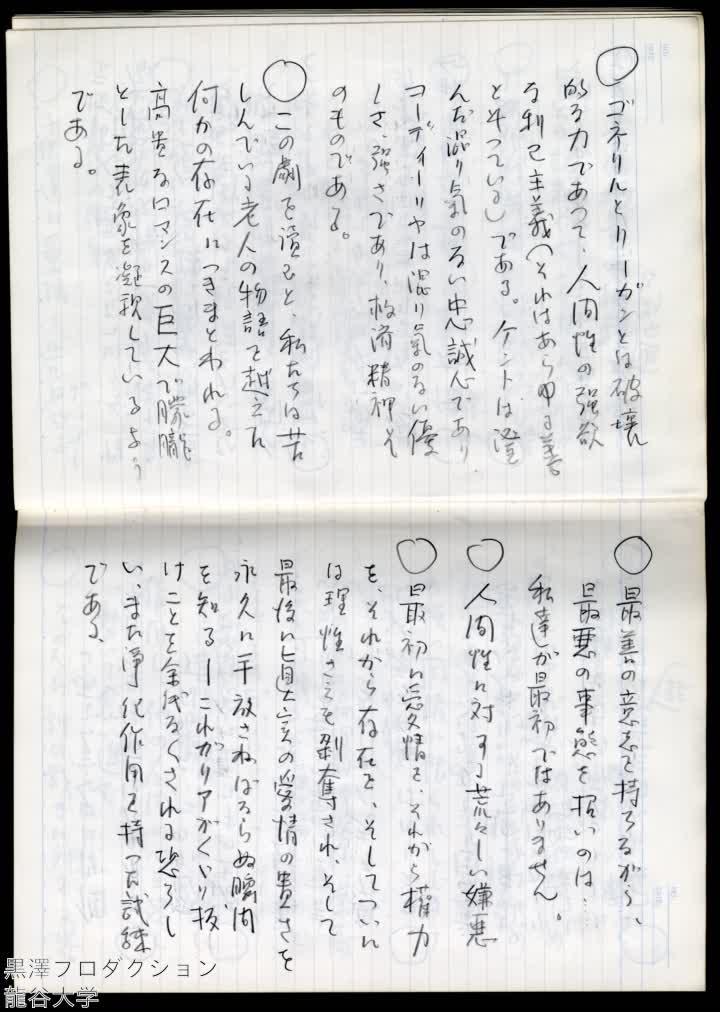 ○ ゴネリルとリーガンとは破壊
的な力であつて、人間性の強欲
な利己主義(それはあらゆる善
と斗つている)である。ケントは澄
んだ混り氣のない忠誠心であり、
コーディーリヤは混り氣のない優
しさ、強さであり、救済精神そ
のものである。
○ この劇を讀むと、私たちは苦
しんでいる老人の物語を越えた
何かの存在につきまとわれる。
高貴なロマンスの巨大で朦朧
とした表象を凝視しているよう
である。
○ 最善の意志を持ちながら、
最悪の事態を招いのは、
私達が最初ではありません。
○ 人間性に対する荒々しい嫌悪
○ 最初に愛情を、それから權力
を、それから存在を、そしてついに
は理性さえも剥奪され、そして
最後に真実の愛情の貴さを
永久に手放さねばならぬ瞬間
を知る—これがリアがくぐり抜
けことを余儀なくされる恐ろし
い、また浄化作用を持つた試練
である、
黒澤プロダクション
龍谷大学